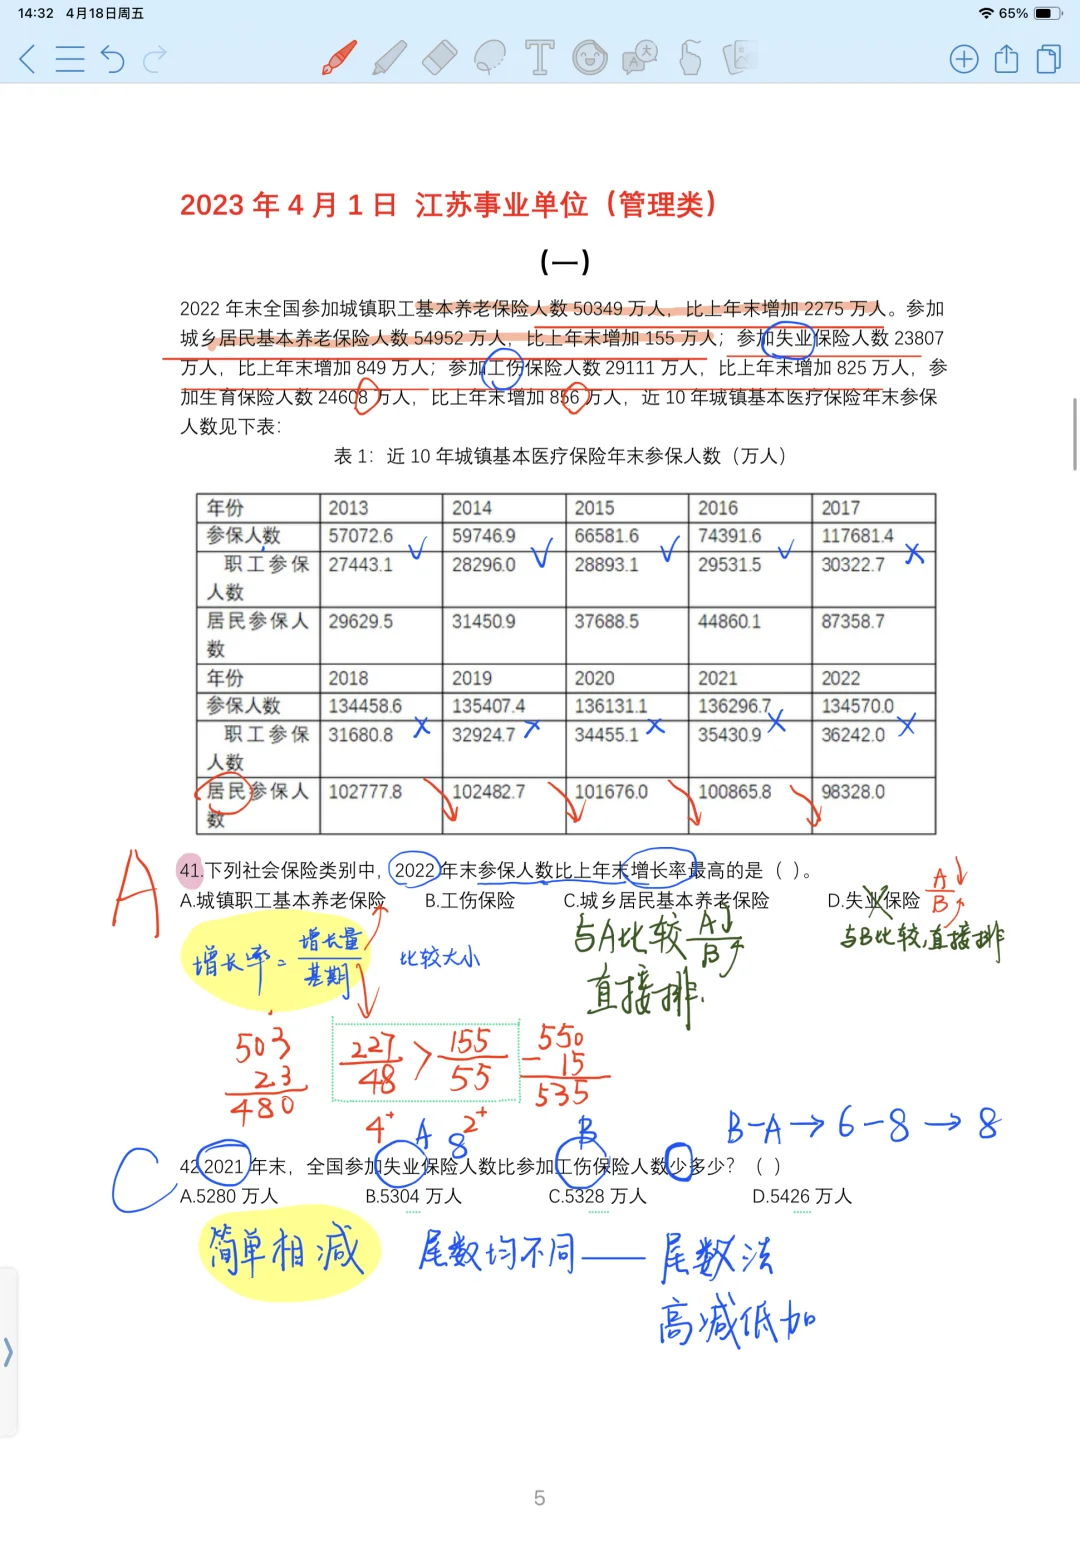 14:32 4月18日周五
65%
2023 年 4 月 1 日 江苏事业单位（管理类）
(一)
2022 年末全国参加城镇职工基本养老保险人数 50349 万人，比上年末增加 2275 万人。参加
城乡居民基本养老保险人数 54952 万人，比上年末增加 155 万人；参加失业保险人数 23807
万人，比上年末增加 849 万人；参加工伤保险人数 29111 万人，比上年末增加 825 万人，参
加生育保险人数 24608 万人，比上年末增加 856 万人，近 10 年城镇基本医疗保险年末参保
人数见下表：
表 1：近 10 年城镇基本医疗保险年末参保人数（万人）
年份 2013 2014 2015 2016 2017
参保人数 57072.6 59746.9 66581.6 74391.6 117681.4
职工参保人数 27443.1 28296.0 28893.1 29531.5 30322.7
居民参保人数 29629.5 31450.9 37688.5 44860.1 87358.7
年份 2018 2019 2020 2021 2022
参保人数 134458.6 135407.4 136131.1 136296.7 134570.0
职工参保人数 31680.8 32924.7 34455.1 35430.9 36242.0
居民参保人数 102777.8 102482.7 101676.0 100865.8 98328.0
A
41.下列社会保险类别中，2022 年末参保人数比上年末增长率最高的是（ ）。
A.城镇职工基本养老保险 B.工伤保险 C.城乡居民基本养老保险 D.失业保险
A↓
B↑
与B比较,直接排
与A比较 A↓
B↑
直接排.
增长率= 增长量
基期
比较大小
503
23
480
227
48
>
155
55
550
- 15
535
4+ 2+
A 8 B
B-A→6-8→8
C
42.2021 年末，全国参加失业保险人数比参加工伤保险人数少多少？（ ）
A.5280 万人 B.5304 万人 C.5328 万人 D.5426 万人
简单相减 尾数均不同——尾数法
高减低加
5